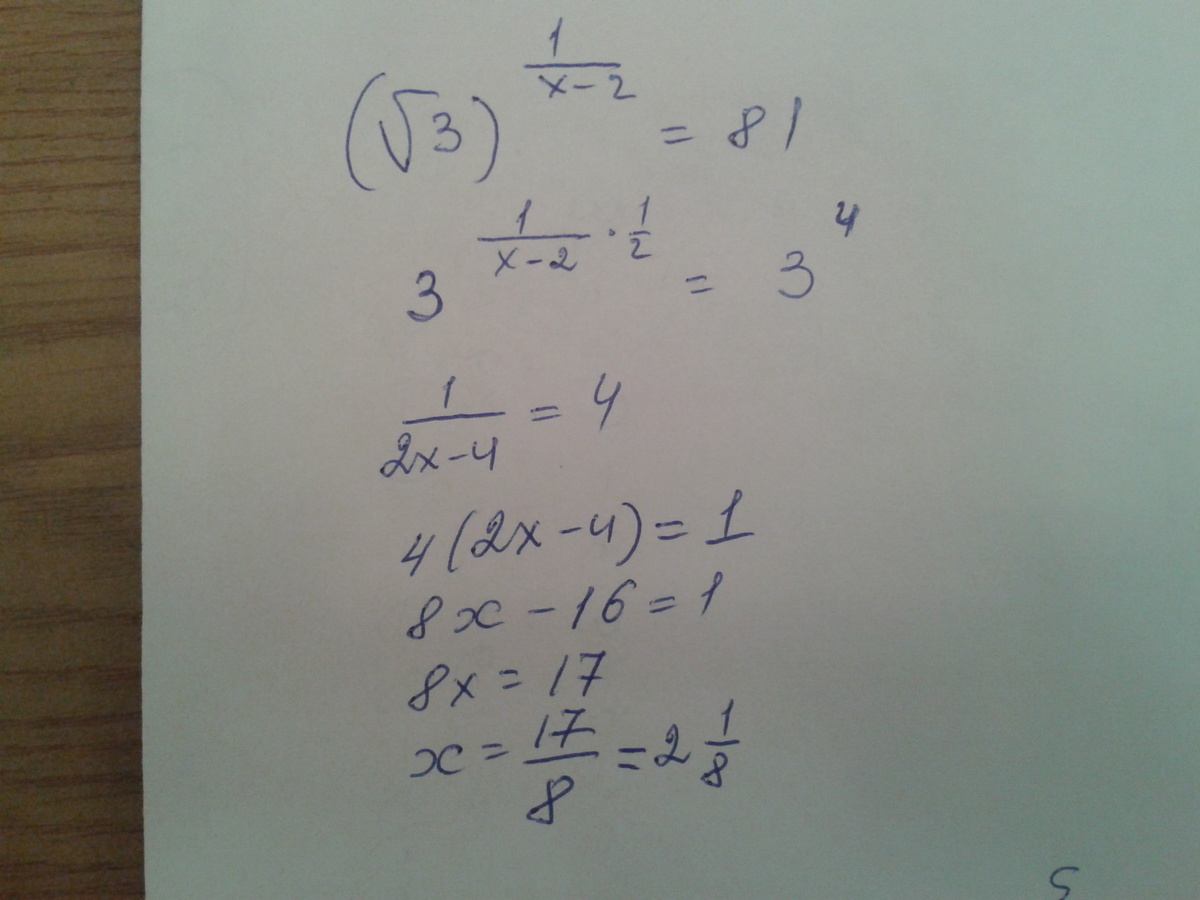 (√3)^(1/(x-2)) = 81
3^(1/(x-2) · 1/2) = 3^4
1/(2x-4) = 4
4(2x-4) = 1
8x - 16 = 1
8x = 17
x = 17/8 = 2 1/8